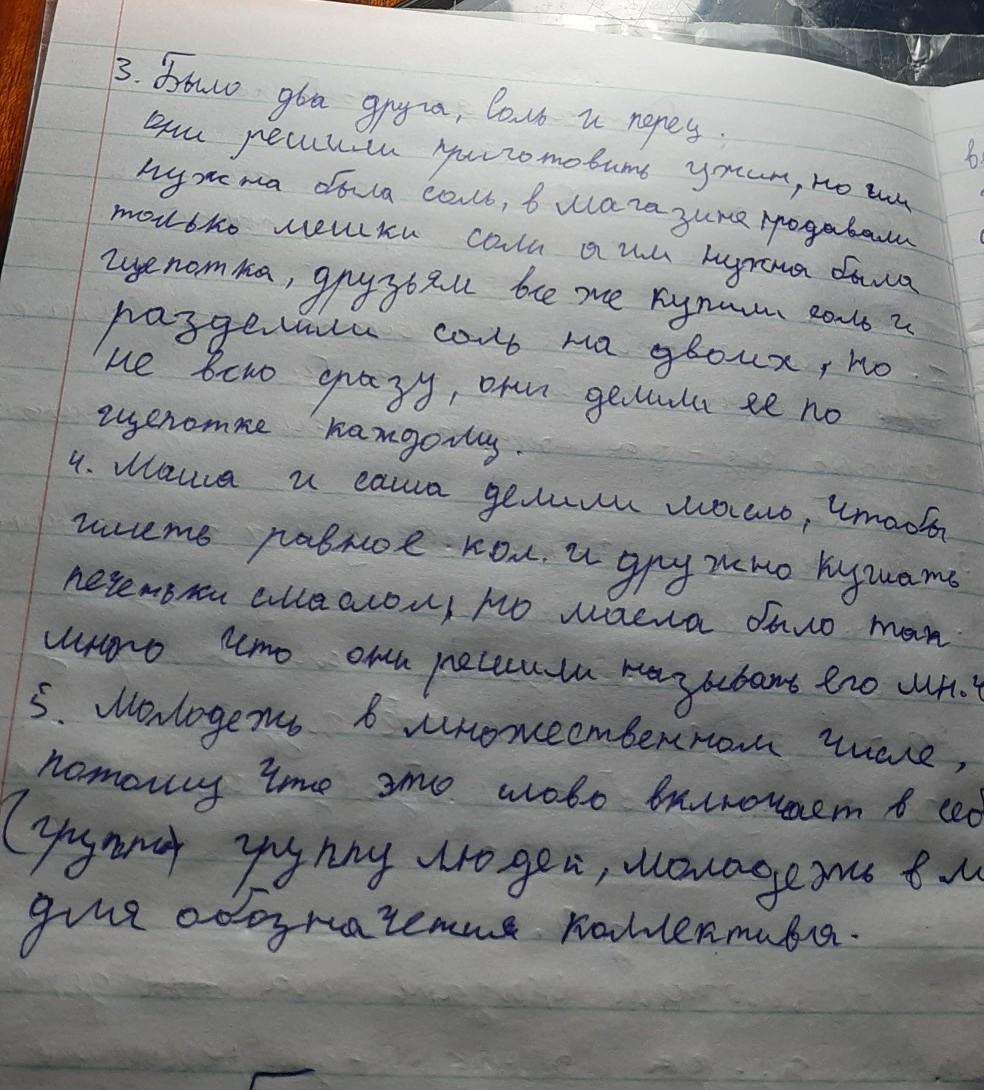 3. Было два друга, соль и перец.
они решили приготовить ужин, но им
нужна была соль, в магазине продавали
только мешки соли а им нужна была
щепотка, друзьям все же купили соль и
разделили соль на двоих, но
не всю сразу, они делили ее по
щепотке каждому.
4. Маша и саша делили масло, чтобы
иметь равное кол. и дружно кушать
печеньки смаслом, но масла было так
много что они решили называть его мн.ч
5. Молодежь в множественном числе,
потому что это слово включает в себ
(группа) группу людей, молодежь в м
для обозначения коллектива.